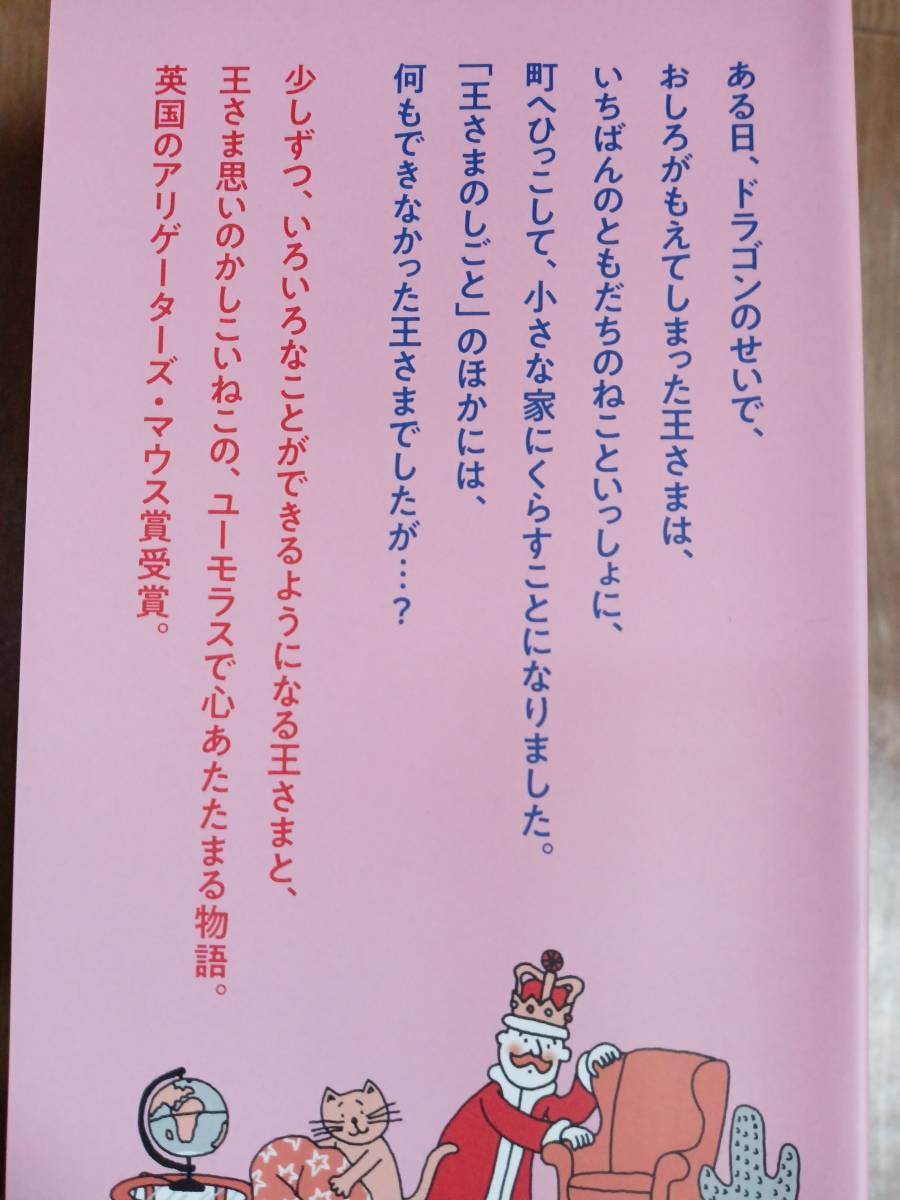 ある日、ドラゴンのせいで、
おしろがもえてしまった王さまは、
いちばんのともだちのねこといっしょに、
町へひっこして、小さな家にくらすことになりました。
「王さまのしごと」のほかには、
何もできなかった王さまでしたが…？
少しずつ、いろいろなことができるようになる王さまと、
王さま思いのかしこいねこの、ユーモラスで心あたたまる物語。
英国のアリゲーターズ・マウス賞受賞。